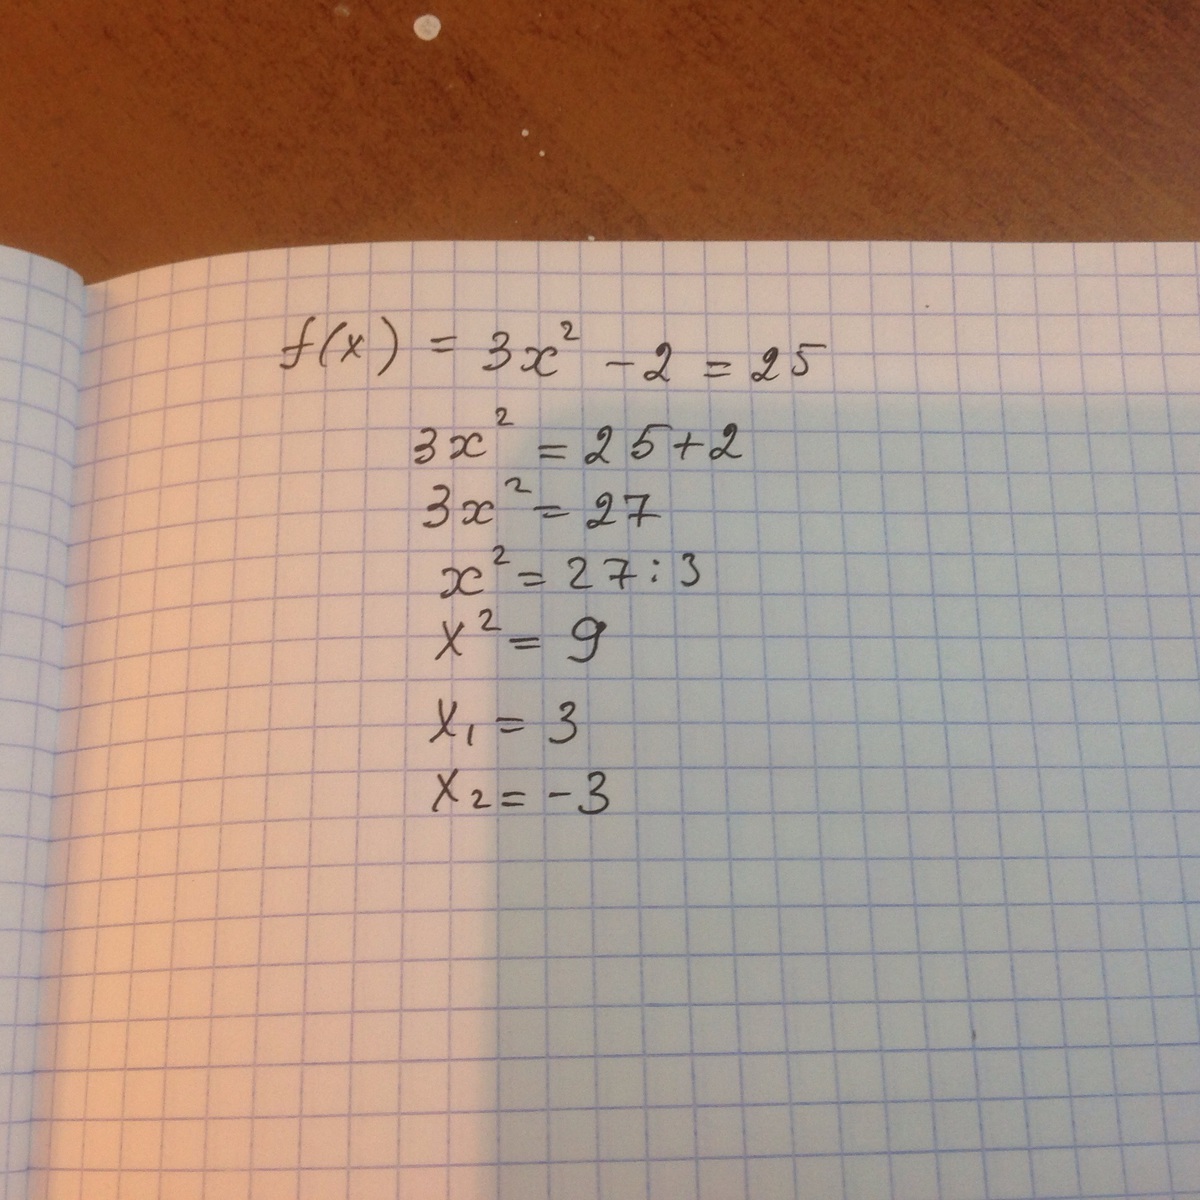 f(x) = 3x² - 2 = 25
3x² = 25+2
3x² = 27
x² = 27:3
x² = 9
x₁ = 3
x₂ = -3